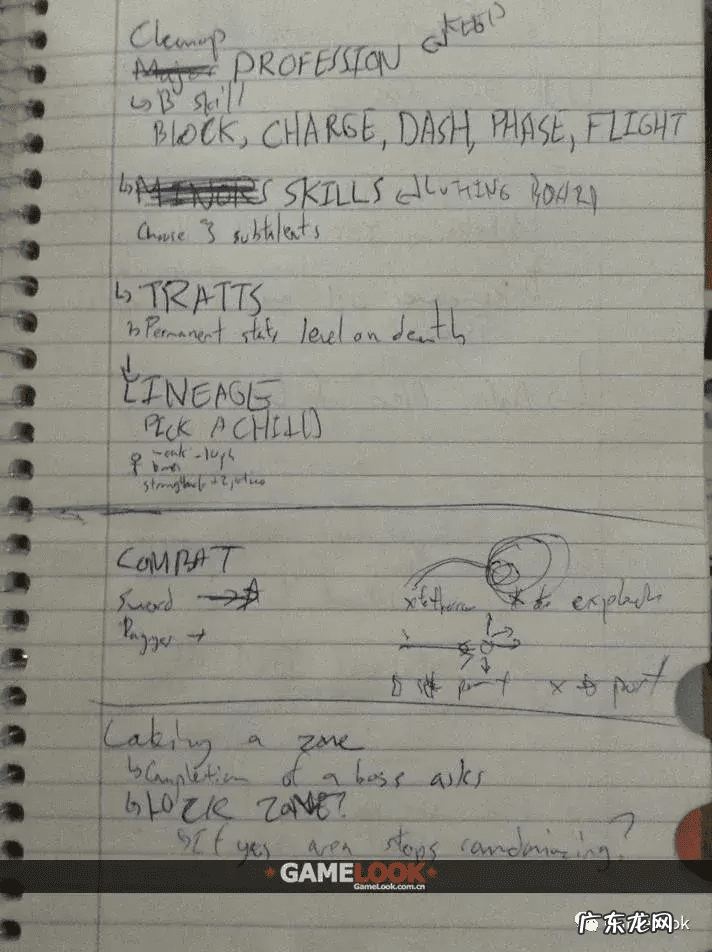 Cleanup
Major PROFESSION
↳ B skill
BLOCK, CHARGE, DASH, PHASE, FLIGHT
↳ MINORS SKILLS BOARD
Choose 3 subtalents
↳ TRAITS
↳ Permanent stats level on death
LINEAGE
PICK A CHILD
COMBAT
Sword
Dagger
x to throw
explode
port
port
Locking a zone
↳ Completion of a boss asks
↳ LOCK ZONE?
↳ If yes area stops randomizing?
GAMELOOK
GameLook.com.cn
广东龙网